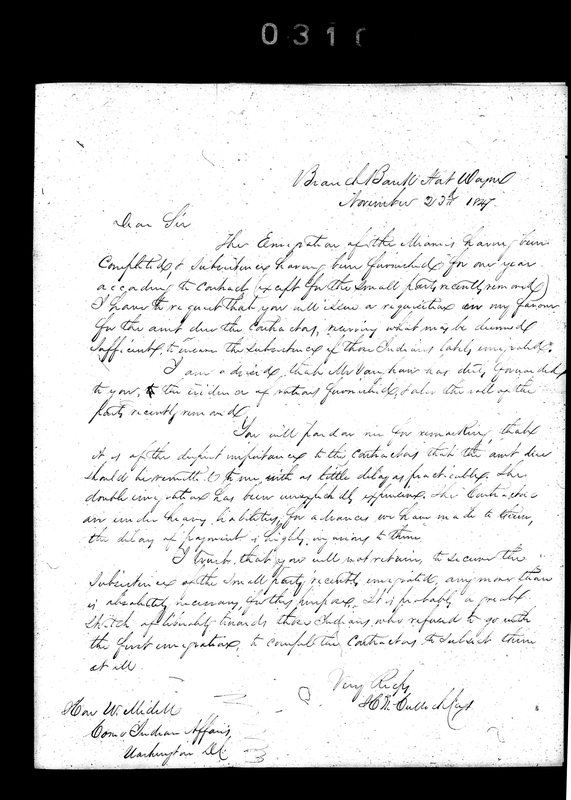 031
Branch Bank Fort Wayne
November 23d 1847
Dear Sir
The Emigration of the Miamis having been
completed, & subsistence having been furnished, for one year
according to contract (except for the small party recently removed)
I have to request that you will issue a requisition in my favour
for the amt due the Contractors, reserving what may be deemed
sufficient to secure the subsistence of those Indians lately emigrated.
I am advised, that Mr Vaughan has duly forwarded
to you, the evidence of rations furnished, & also the roll of the
party recently removed.
You will pardon me for remarking, that
it is of the deepest importance to the Contractors that the amt due
should be remitted to me, with as little delay as practicable. The
double emigration has been unexpectedly expensive. The Contractors
are under heavy liabilities, for advances we have made to them,
the delay of payment is highly injurious to them
I trust, that you will not retain, to secure the
subsistence of the small party recently emigrated, any more than
is absolutely necessary, for this purpose. It is probably a great
stretch of liberality towards those Indians who refused to go with
the first emigration, to compel the Contractors to subsist them
at all
Very Respy
H McCulloch Cash
Hon W. Medill
Com of Indian Affairs,
Washington DC